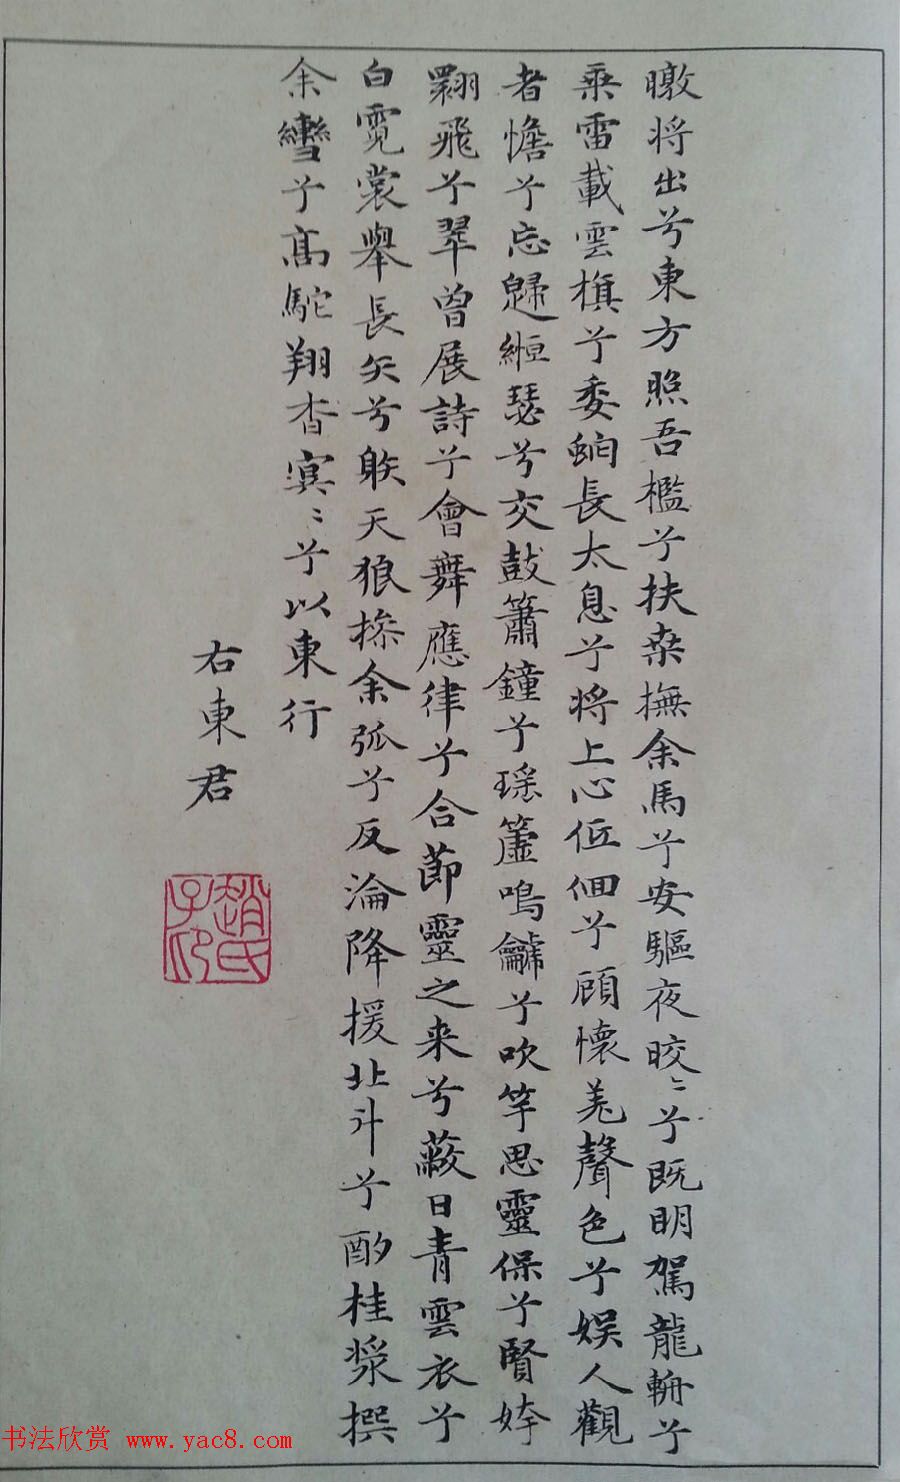 暾将出兮東方照吾檻兮扶桒撫余馬兮安驅夜晈〻兮既明駕龍輈兮
乗雷載雲旗兮委蛇長太息兮将上心低佪兮顧懷羌聲色兮娱人觀
者憺兮忘歸緪瑟兮交鼓簫鐘兮瑶簴鳴龥兮吹竽思靈保兮賢姱
翾飛兮翠曾展詩兮會舞應律兮合莭靈之来兮蔽日青雲衣兮
白霓裳舉長矢兮䠶天狼摻余弧兮反淪降援北斗兮酌桂漿撰
余轡兮髙駝翔杳冥〻兮以東行
右東君
趙氏子印
书法欣赏 www.yac8.com